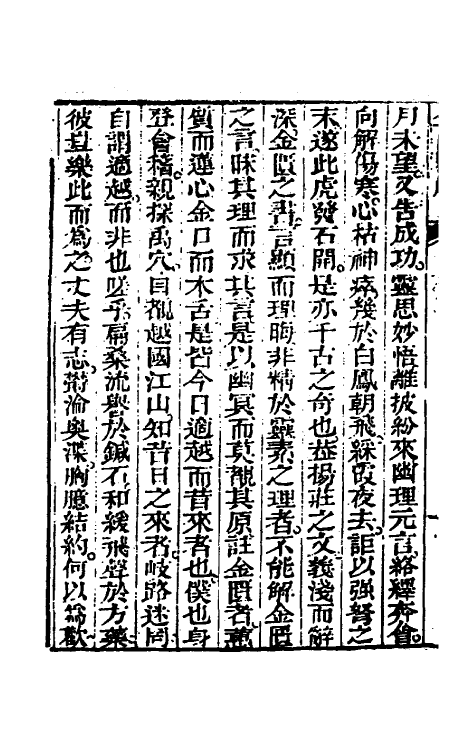 月未望又告成功靈思妙悟離披紛來幽理元言絡繹奔會
向解傷寒心枯神瘁幾於白鳳朝飛綵霞夜去詎以强弩之
末遂此虎發石開是亦千古之奇也葢揚莊之文義淺而解
深金匱之書言顯而理晦非精於靈素之理者不能解金匱
之言昧其理而求其言是以幽冥而莫覩其原註金匱者萬
質而運心金口而木舌是皆今日適越而昔來者也僕也身
登會稽親探禹穴目覩越國江山知昔日之來者岐路迷罔
自謂適越而非也嗟乎扁桑流譽於鍼石和緩飛聲於方藥
彼豈樂此而爲之丈夫有志滯淪奥渫胸臆結約何以爲歡